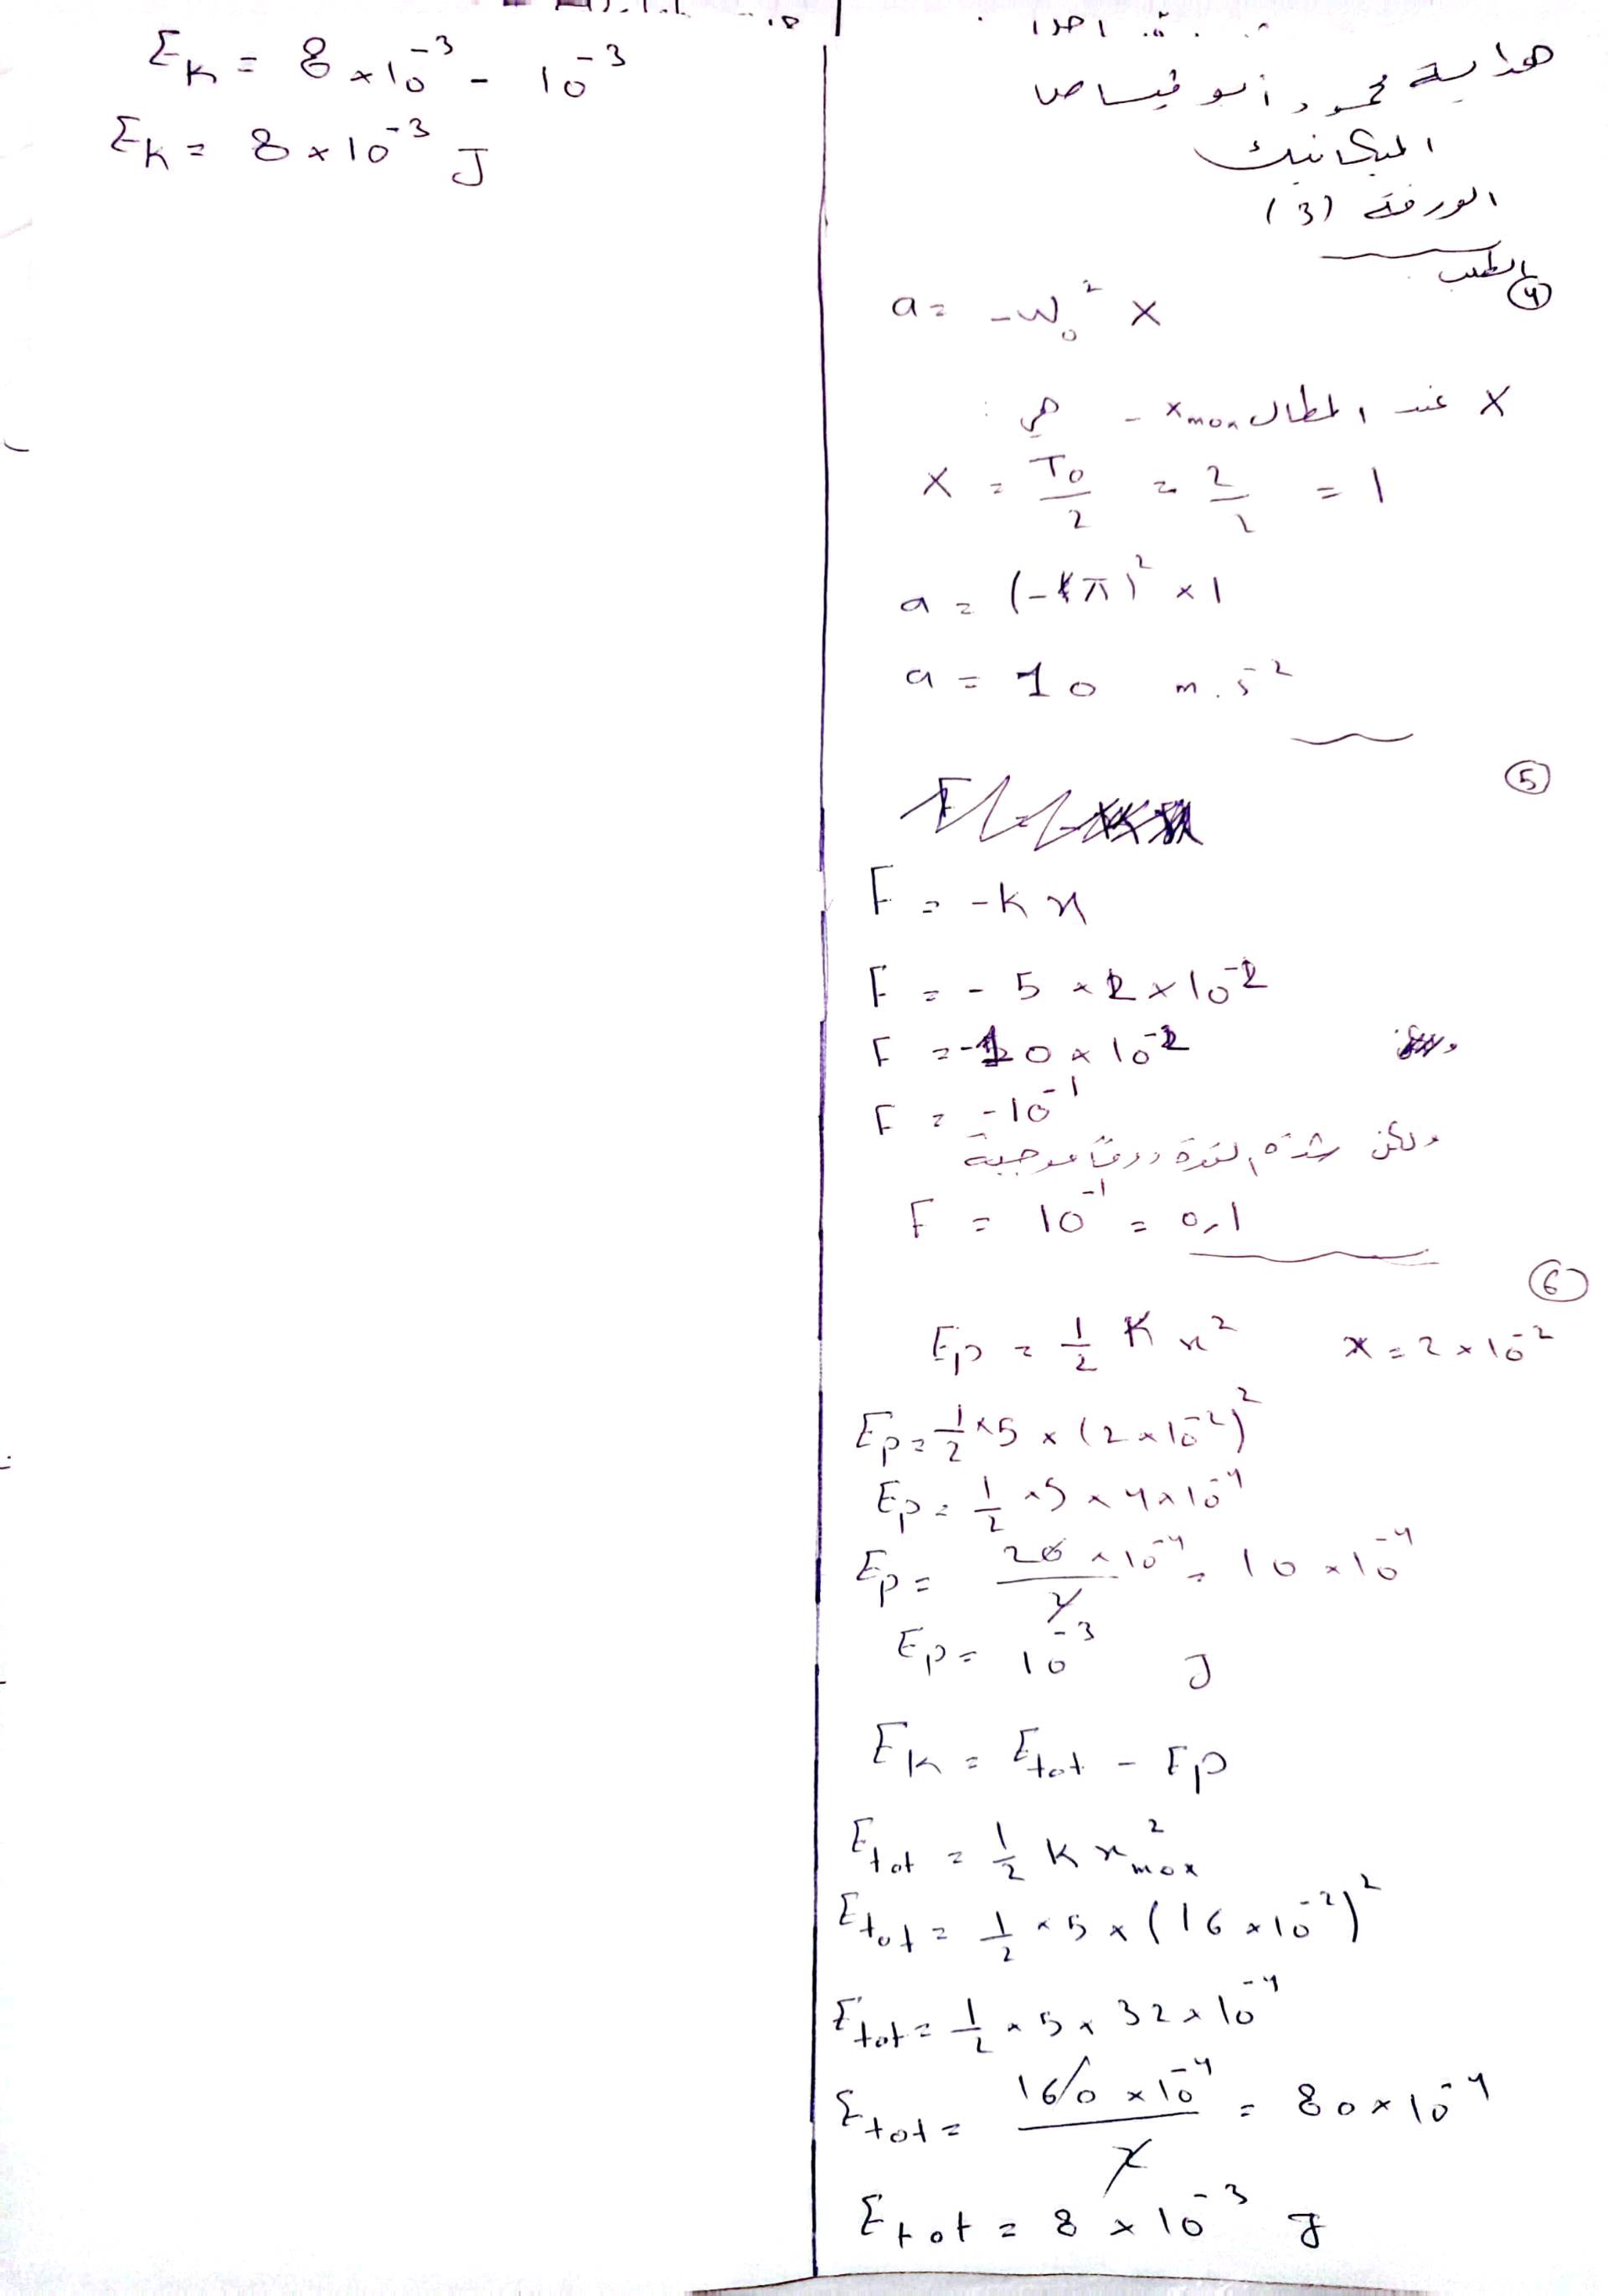 هداية محمود أبو قيساص
الميكانيك
الورقة (3)
الطلب
4
a = -ω₀² x
x عند المطال xmax - هي :
x = T₀/2 = 2/2 = 1
a = (-π)² × 1
a = 10 m.s⁻²
5
F = -k x
F = - 5 × 2 × 10⁻²
F = -10 × 10⁻²
F = -10⁻¹
ولكن شدة القوة دوماً موجبة
F = 10⁻¹ = 0,1
6
Ep = 1/2 K x² x = 2 × 10⁻²
Ep = 1/2 × 5 × (2 × 10⁻²)²
Ep = 1/2 × 5 × 4 × 10⁻⁴
Ep = 20 × 10⁻⁴/2 = 10 × 10⁻⁴
Ep = 10⁻³ J
Ek = Etot - Ep
Etot = 1/2 k x²max
Etot = 1/2 × 5 × (16 × 10⁻²)²
Etot = 1/2 × 5 × 32 × 10⁻⁴
Etot = 160 × 10⁻⁴/2 = 80 × 10⁻⁴
Etot = 8 × 10⁻³ J
Ek = 8 × 10⁻³ - 10⁻³
Ek = 8 × 10⁻³ J